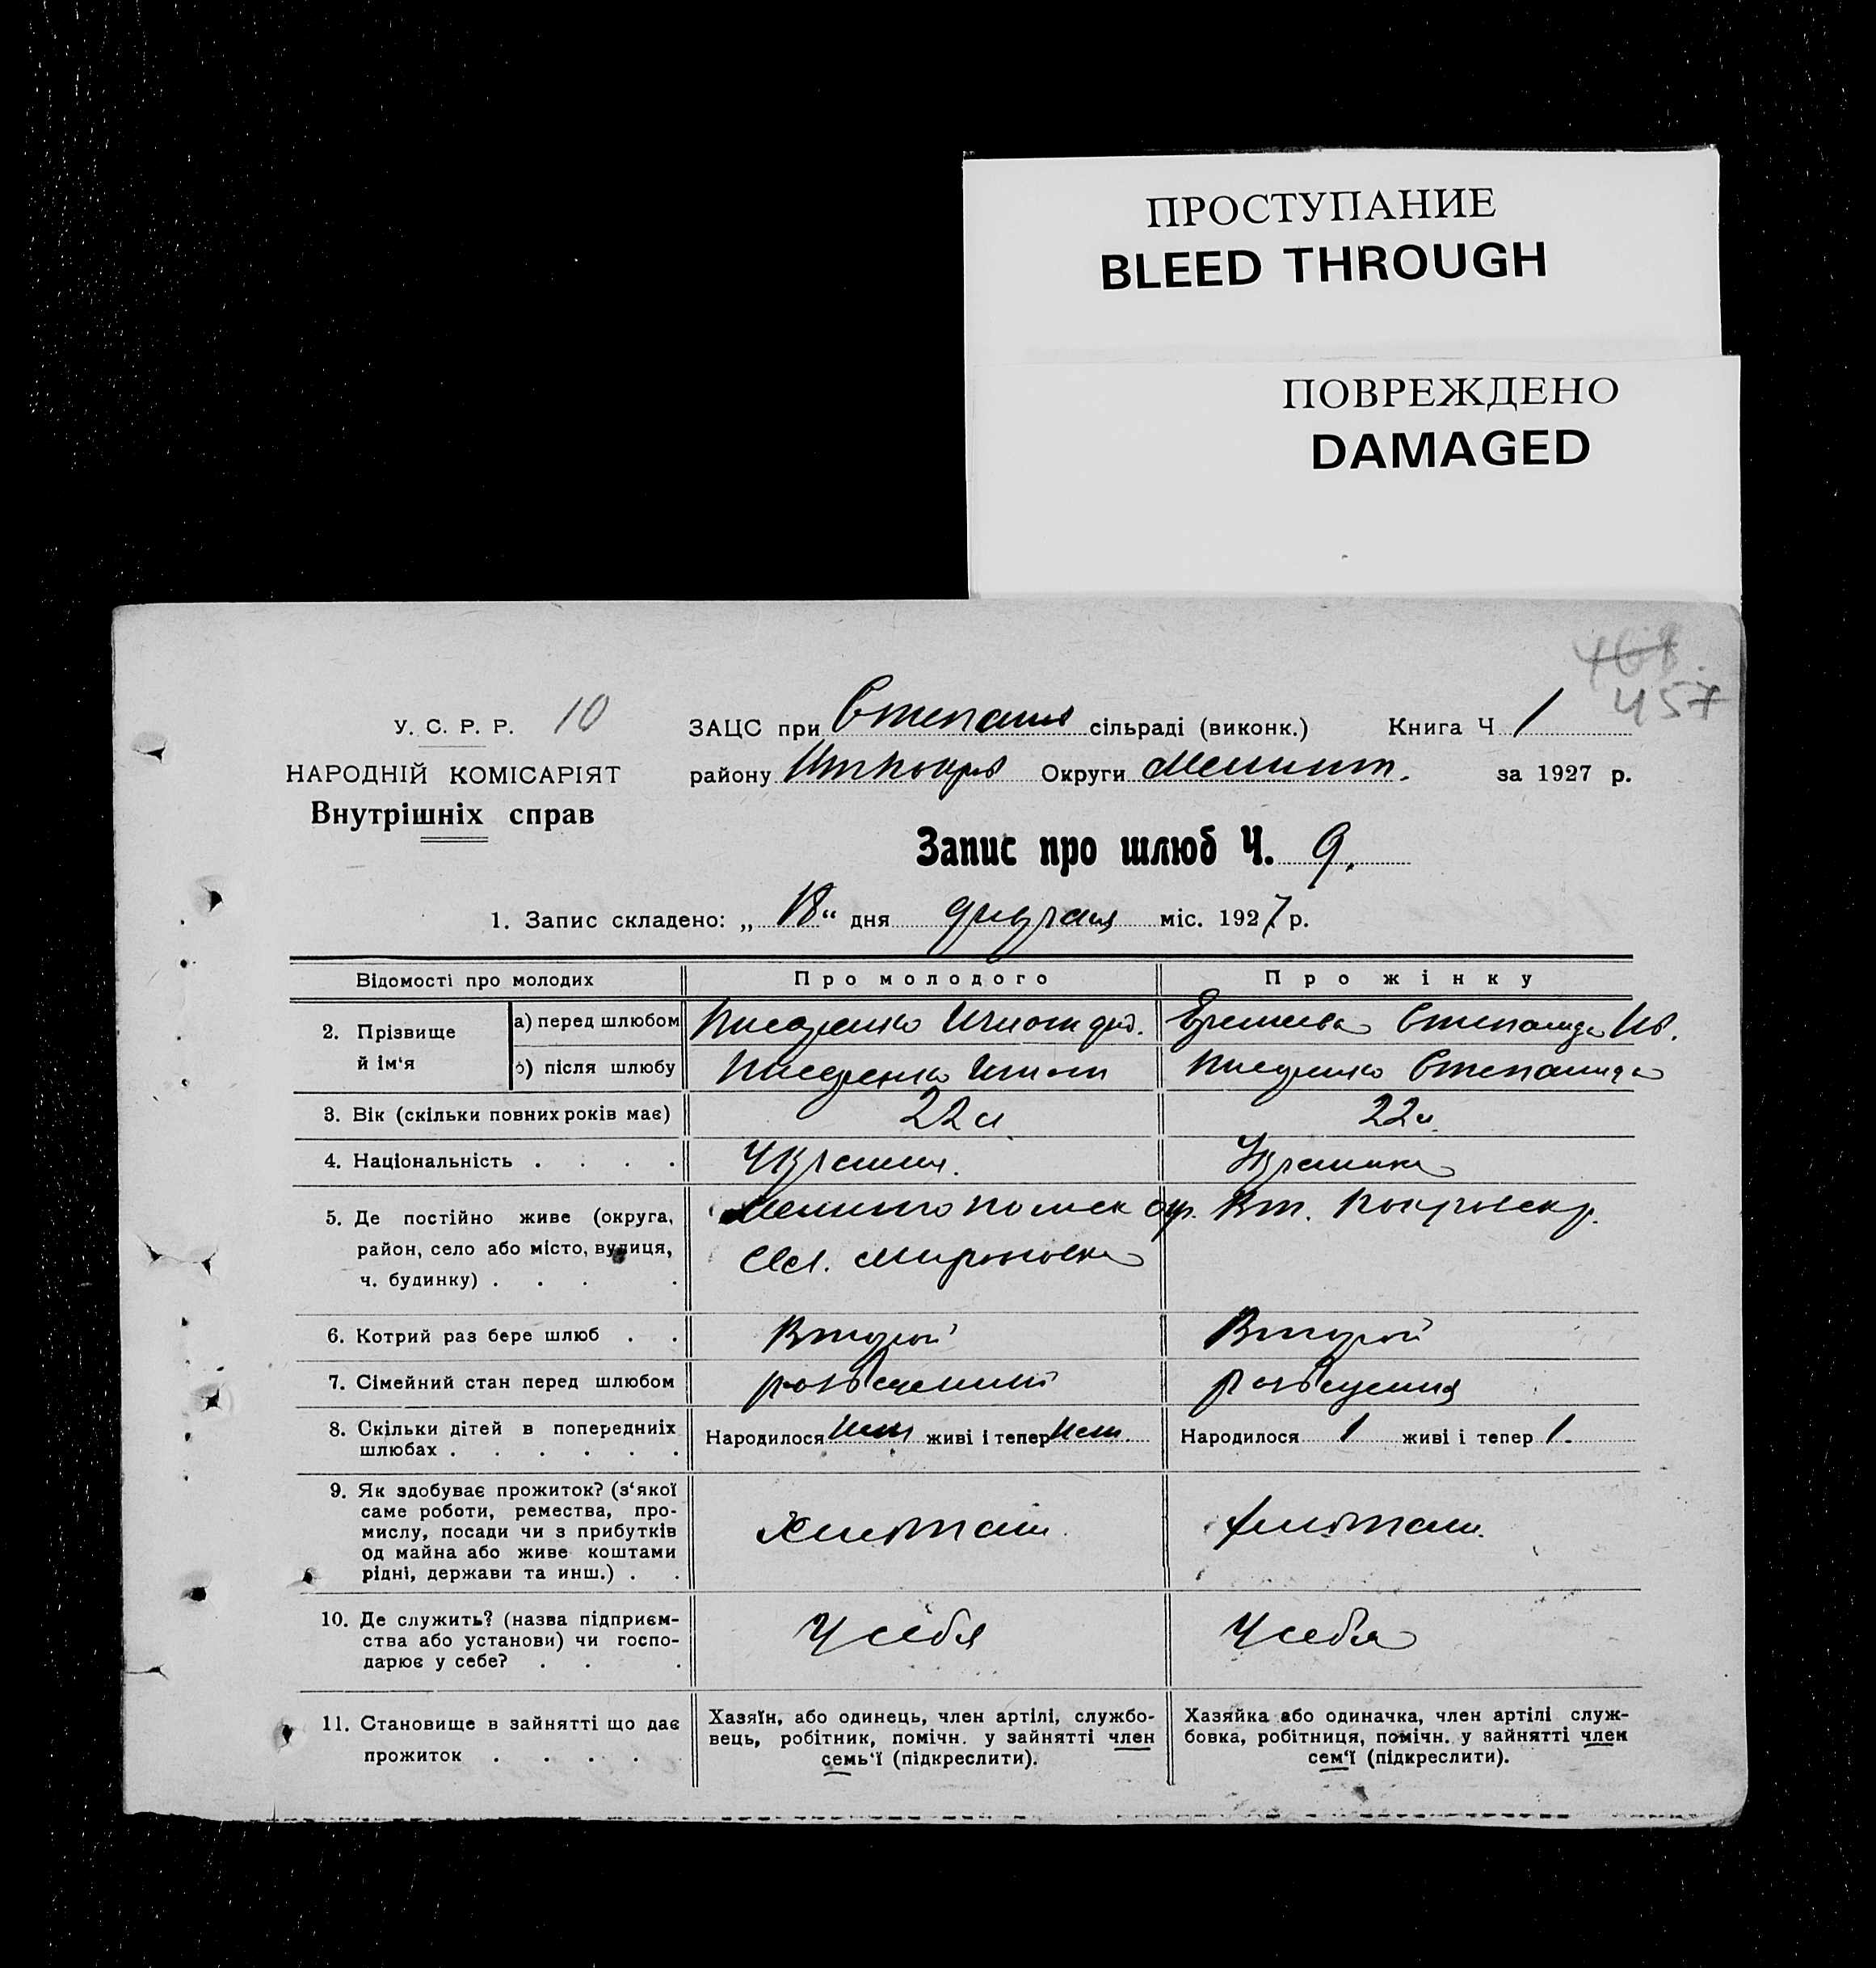 ПРОСТУПАНИЕ
BLEED THROUGH
ПОВРЕЖДЕНО
DAMAGED
468
457
У. С. Р. Р. 10
НАРОДНІЙ КОМІСАРІЯТ
Внутрішніх справ
ЗАЦС при сільраді (виконк.) Книга Ч 1
району Округи за 1927 р.
Запис про шлюб Ч. 9.
1. Запис складено: „ 18 “ дня февраля міс. 1927 р.
Відомості про молодих Про молодого Про жінку
2. Прізвище й ім‘я
а) перед шлюбом Писаренко Степанида Ив.
б) після шлюбу Писаренко Игнат Писаренко Степанида
3. Вік (скільки повних років має) 22 л 22 л.
4. Національність . . . . Украин. Украинка
5. Де постійно живе (округа,
район, село або місто, вулиця,
ч. будинку) . . . .
Мелитопольск окр. Вт. Покровск р.
Сел. Мироновка
6. Котрий раз бере шлюб . . Второй Второй
7. Сімейний стан перед шлюбом разведенный разведеная
8. Скільки дітей в попередніх
шлюбах . . . . . .
Народилося нет живі і тепер нет. Народилося 1 живі і тепер 1.
9. Як здобуває прожиток? (з‘якої
саме роботи, ремества, про-
мислу, посади чи з прибутків
од майна або живе коштами
рідні, держави та инш.) . .
Хлебопаш. Хлебопаш.
10. Де служить? (назва підприєм-
ства або установи) чи госпо-
дарює у себе? . . .
У себя У себя
11. Становище в зайнятті що дає
прожиток . . . .
Хазяїн, або одинець, член артілі, службо-
вець, робітник, помічн. у зайнятті член
семь‘ї (підкреслити).
Хазяйка або одиначка, член артілі служ-
бовка, робітниця, помічн. у зайнятті член
сем‘ї (підкреслити).